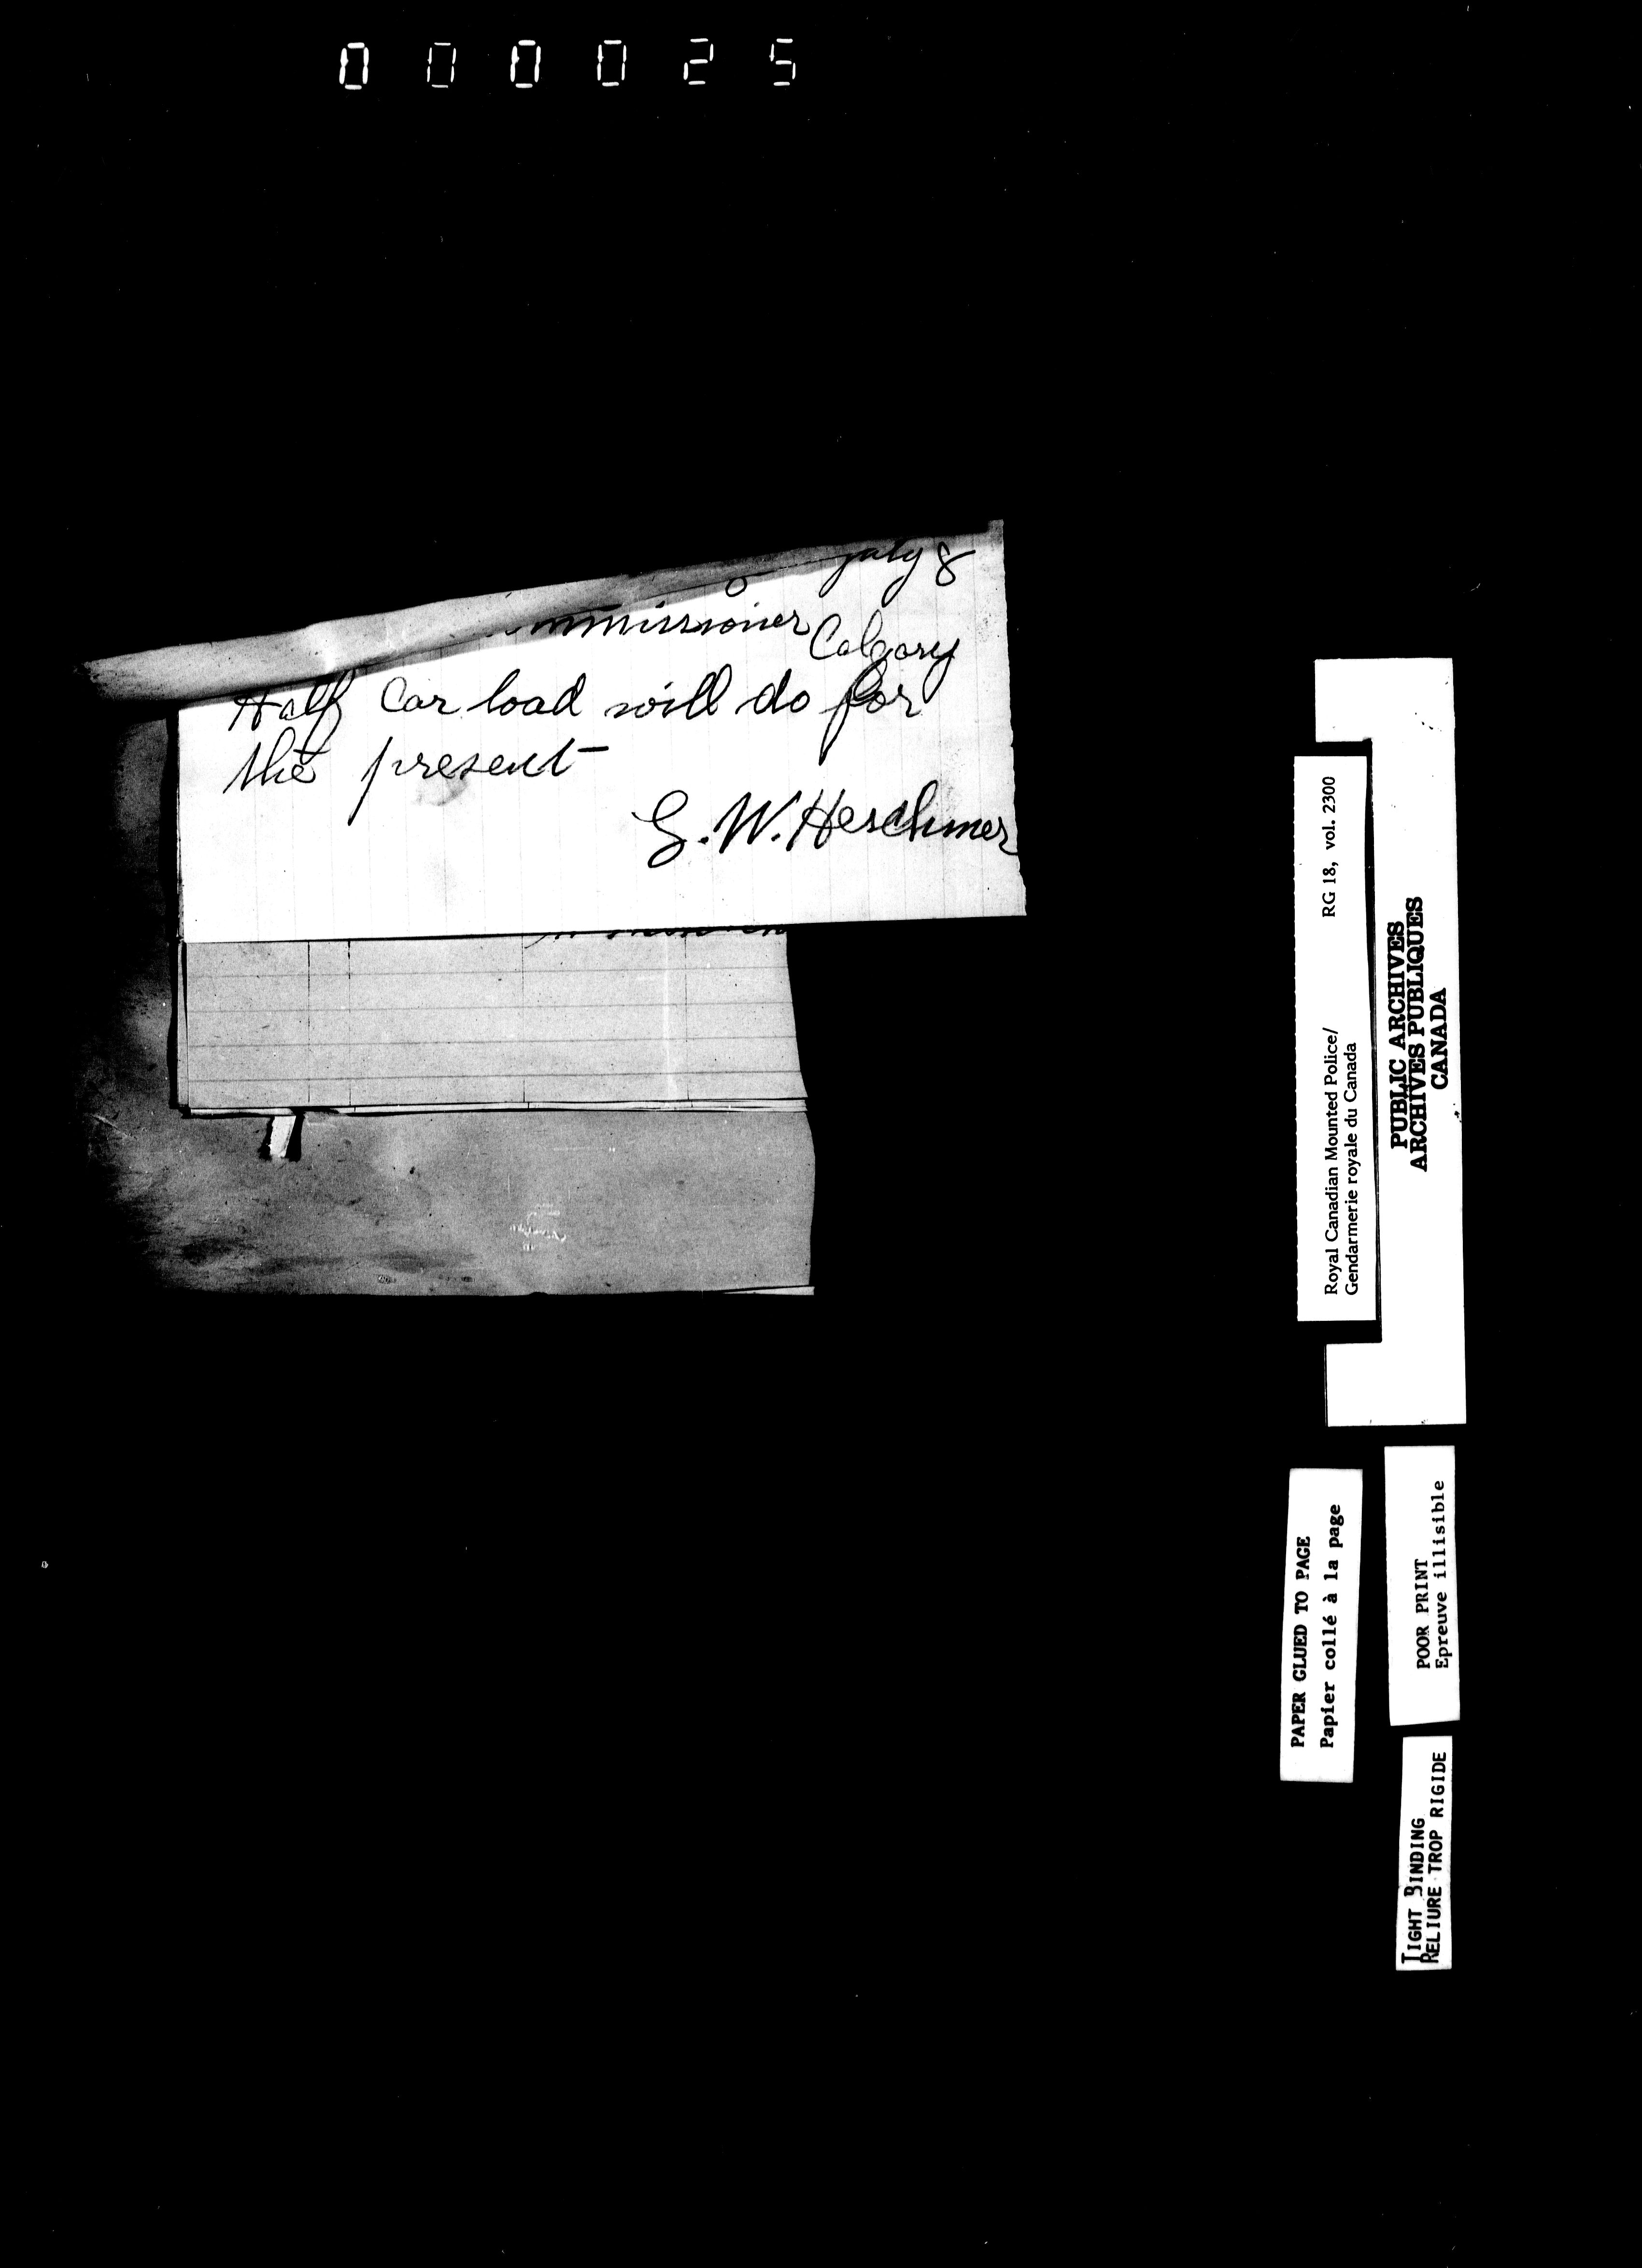 000025
July 8
mmissioner
Calgary
Half Car load will do for
the present
G. W. Herchmer
Royal Canadian Mounted Police/ RG 18, vol. 2300
Gendarmerie royale du Canada
PUBLIC ARCHIVES
ARCHIVES PUBLIQUES
CANADA
PAPER GLUED TO PAGE
Papier collé à la page
POOR PRINT
Epreuve illisible
TIGHT BINDING
RELIURE TROP RIGIDE